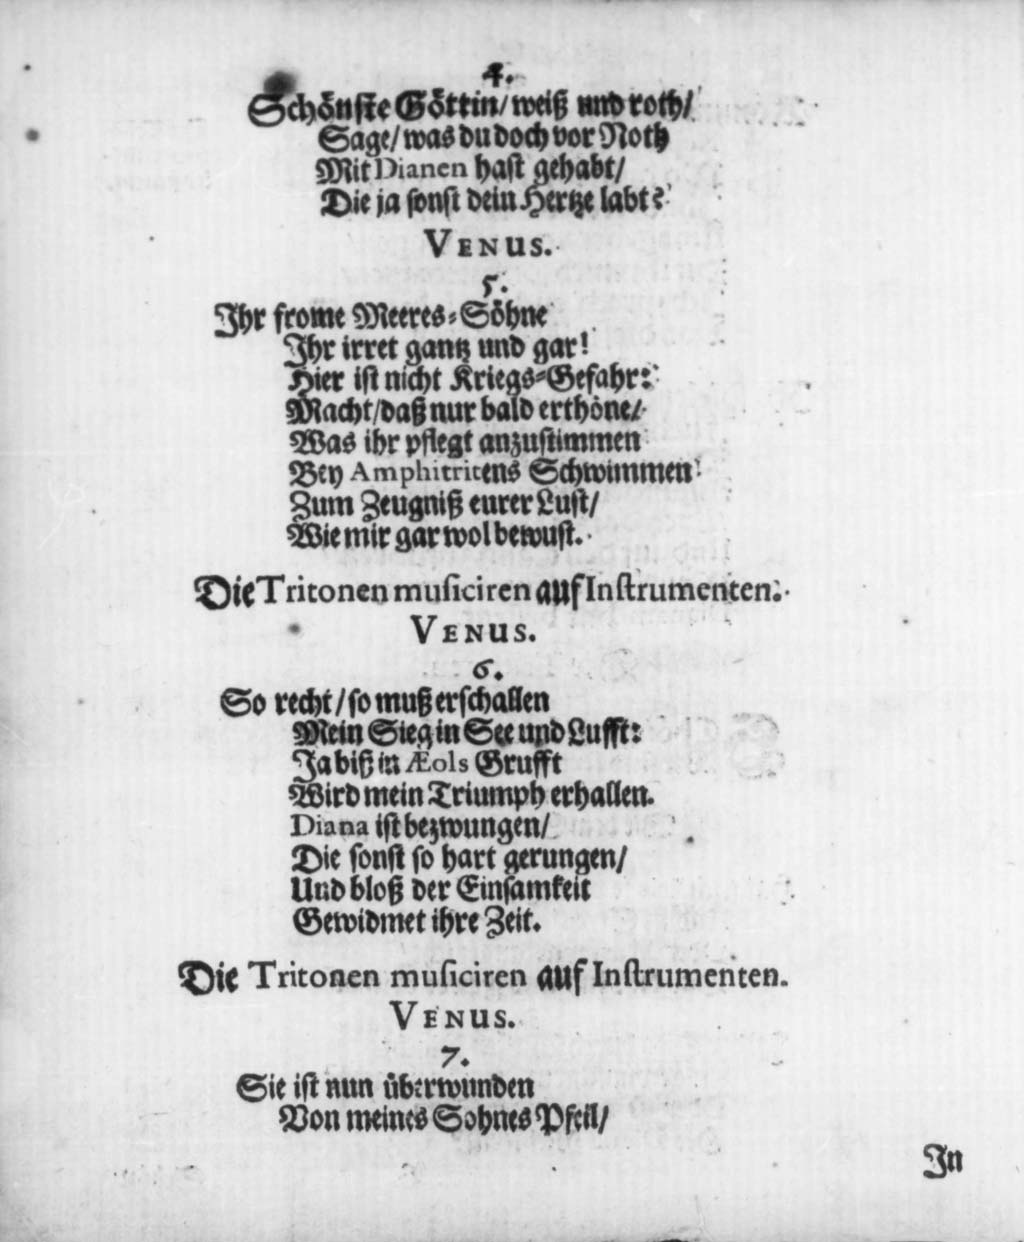 4.
Schönste Göttin/ weiß und roth/
Sage/ was du doch vor Noth
Mit Dianen hast gehabt/
Die ja sonst dein Hertze labt?
VENUS.
5.
Ihr frome Meeres-Söhne
Ihr irret gantz und gar!
Hier ist nicht Kriegs-Gefahr:
Macht/ daß nur bald erthöne/
Was ihr pflegt anzustimmen
Bey Amphitritens Schwimmen
Zum Zeugniß eurer Lust/
Wie mir gar wol bewust.
Die Tritonen musiciren auf Instrumenten.
VENUS.
6.
So recht/ so muß erschallen
Mein Sieg in See und Lufft:
Ja biß in Æols Grufft
Wird mein Triumph erhallen.
Diana ist bezwungen/
Die sonst so hart gerungen/
Und bloß der Einsamkeit
Gewidmet ihre Zeit.
Die Tritonen musiciren auf Instrumenten.
VENUS.
7.
Sie ist nun überwunden
Von meines Sohnes Pfeil/
In